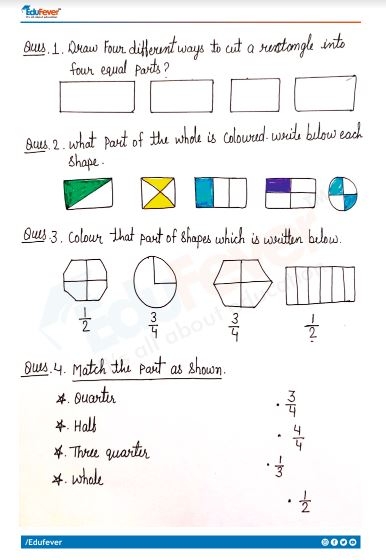 EduFever
It's all about education
Ques.1. Draw Four different ways to cut a rectangle into
four equal parts?
Ques.2. What part of the whole is coloured. write below each
shape.
Ques.3. Colour that part of shapes which is written below.
1/2 3/4 3/4 1/2
Ques.4. Match the part as shown.
* Quarter . 3/4
* Half . 4/4
* Three quarter . 1/3
* whole . 1/2
EduFever
it's all about education
/Edufever